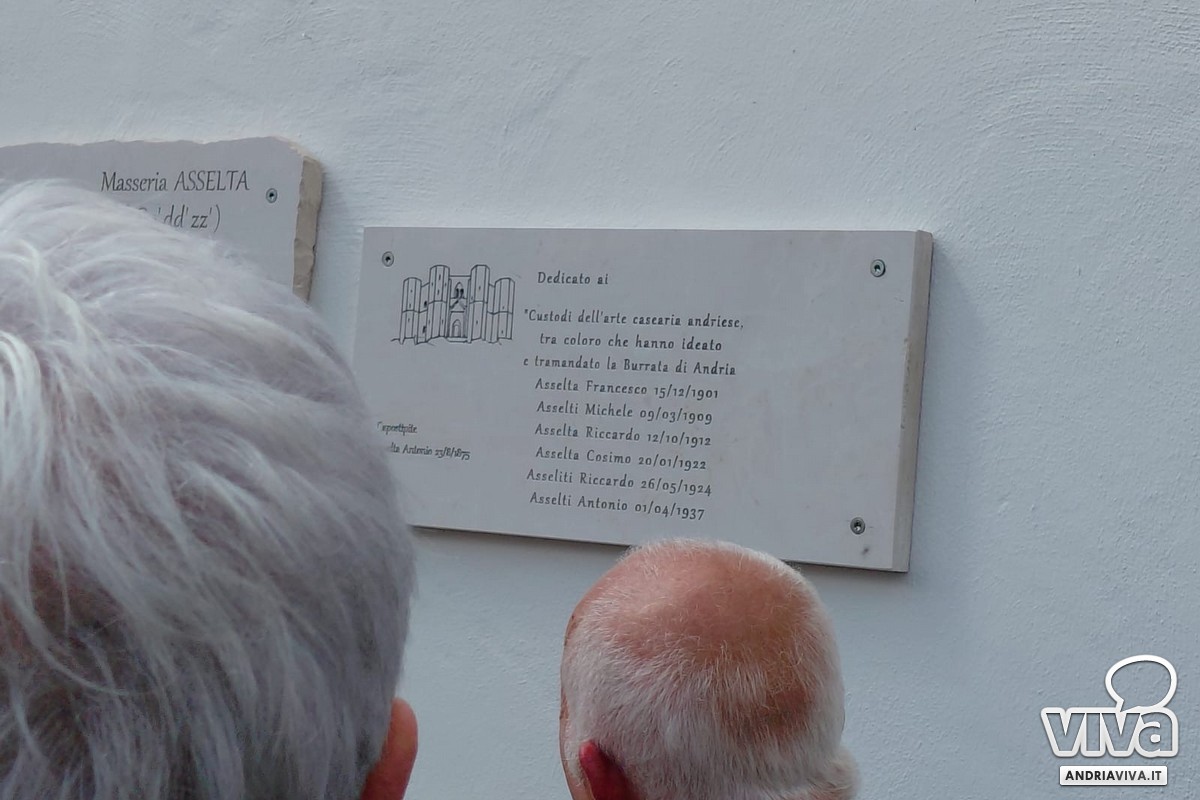 Masseria ASSELTA
Dedicato ai
"Custodi dell'arte casearia andriese,
tra coloro che hanno ideato
e tramandato la Burrata di Andria
Asselta Francesco 15/12/1901
Asselti Michele 09/03/1909
Asselta Riccardo 12/10/1912
Asselta Cosimo 20/01/1922
Asseliti Riccardo 26/05/1924
Asselti Antonio 01/04/1937
Antonio 23/8/1875
viva
ANDRIAVIVA.IT